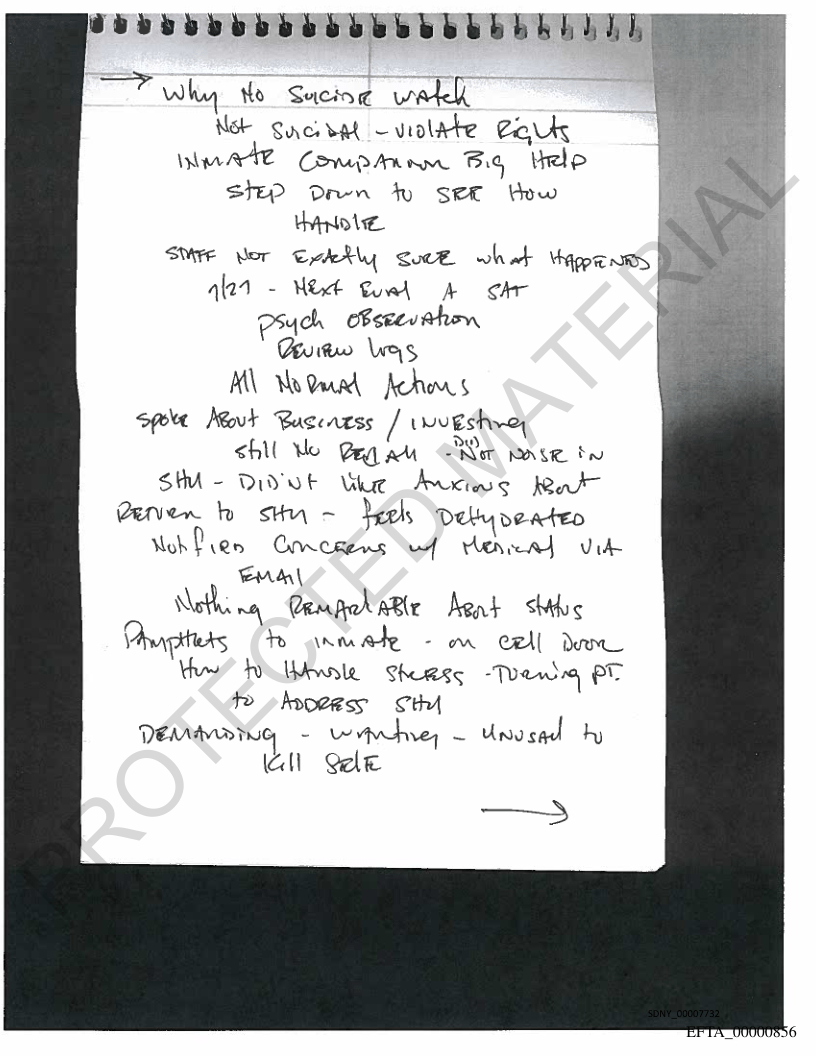 → Why No Suicide Watch
Not Suicidal - Violate Rights
Inmate Companion Big Help
Step Down to See How
Handle
Staff Not Exactly Sure what Happened
7/27 - Next Eval A SAT
Psych Observation
Review Logs
All Normal Actions
Spoke About Business / Investing
Still No Recall - Did Not Noise in
SHU - Didn't like Anxious About
Return to SHU - feels Dehydrated
Notified Concerns w/ Medical via
Email
Nothing Remarkable About Status
Pamphlets to inmate - on cell Door
How to Handle Stress - Turning pt.
to Address SHU
Demanding - wanting - Unusual to
Kill Self
→
PROTECTED MATERIAL
SDNY_00007732
EFTA_00000856